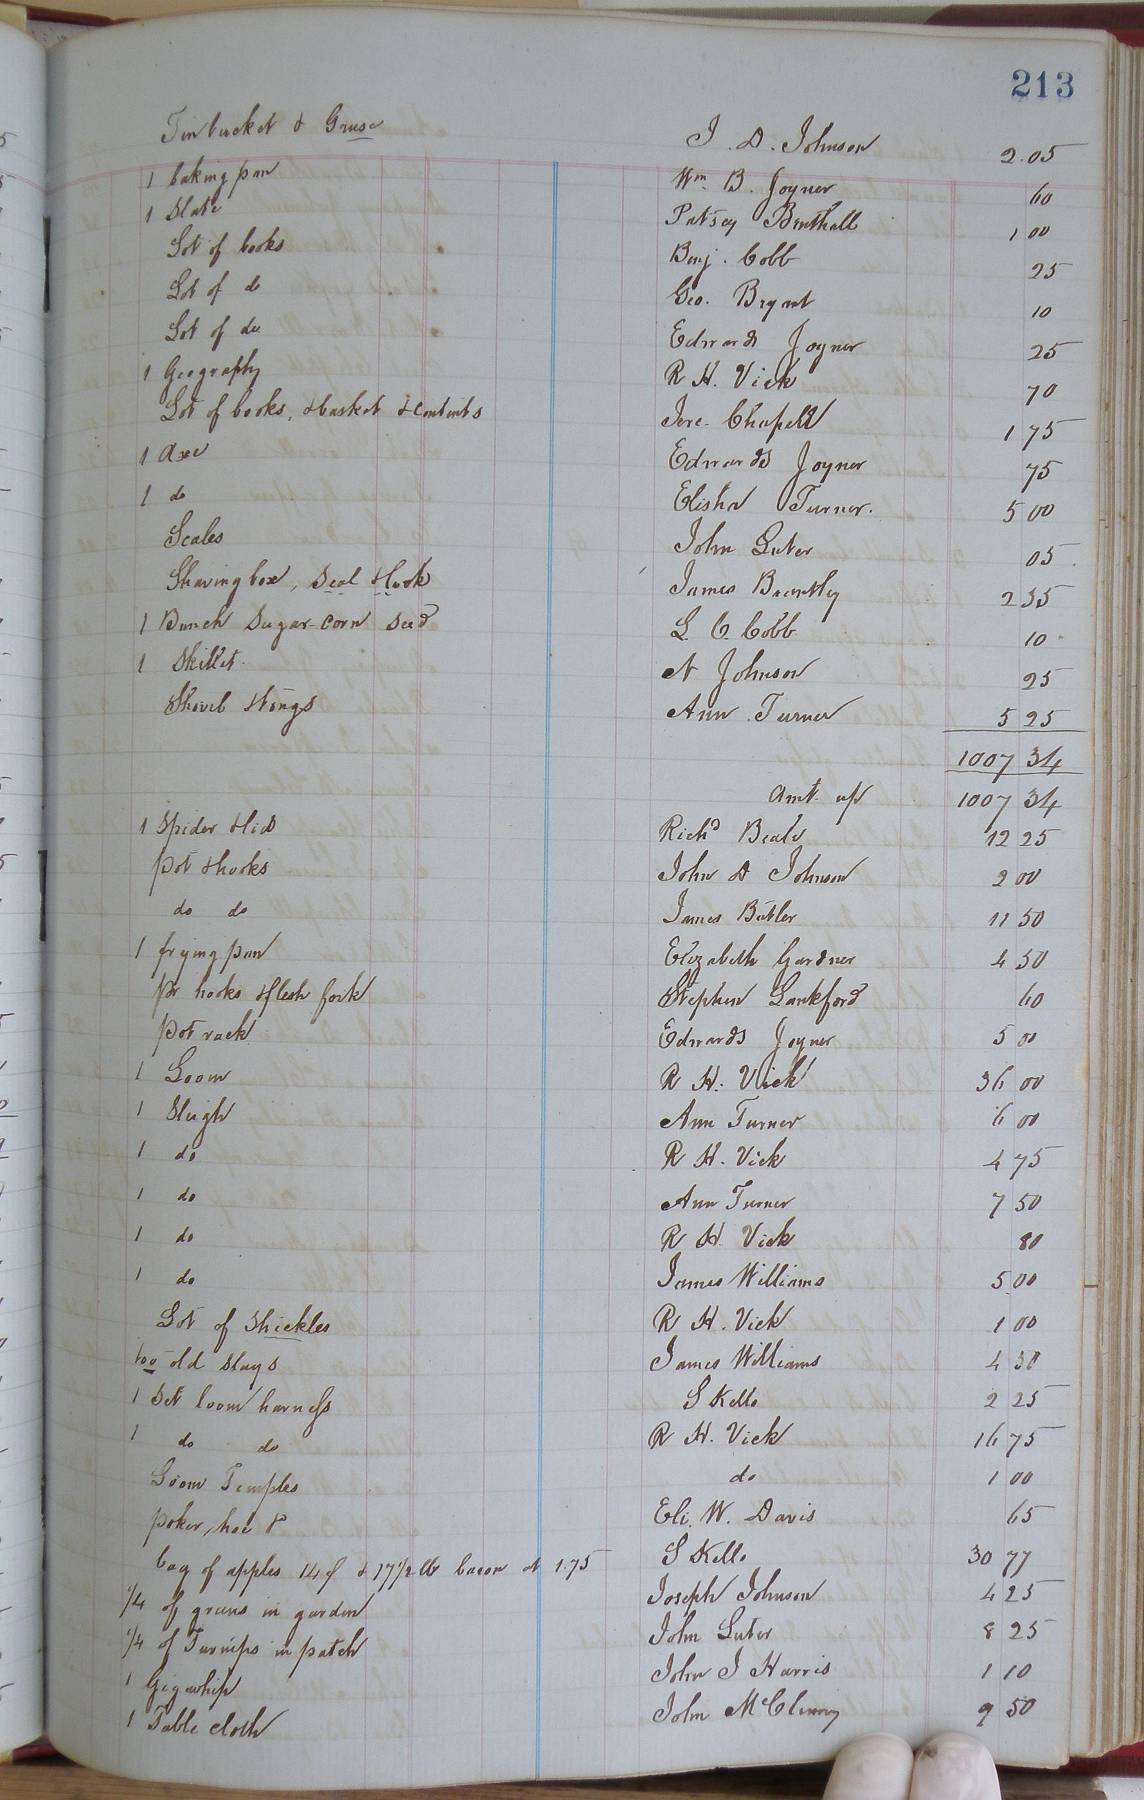 213
Tin bucket & Gruse J. D. Johnson 2.05
1 baking pan Wm. B. Joyner 60
1 Slate Patsey Benthall 1 00
Lot of books Benj. Cobb 25
Lot of do Geo. Bryant 10
Lot of do Edwards Joyner 25
1 Geography R H. Vick 70
Lot of books, & basket & contents Jere. Chapell 1 75
1 axe Edwards Joyner 75
1 do Elisha Turner. 5 00
Scales John Luter 05
Shaving box, Seal & book James Brantley 2 55
1 Bunch Sugar-corn Seed L. C. Cobb 10
1 Skillet. N Johnson 25
Shovel & tongs Ann Turner 5 25
1007 34
Amt. up 1007 34
1 Spider & lid Richd Beale 12 25
Pot & hooks John D Johnson 2 00
do do James Butler 11 50
1 frying pan Elizabeth Gardner 4 50
Pr hooks & flesh fork Stephen Lankford 60
Pot rack Edwards Joyner 5 00
1 Loom R H. Vick 36 00
1 Sleigh Ann Turner 6 00
1 do R H. Vick 4 75
1 do Ann Turner 7 50
1 do R H. Vick 80
1 do James Williams 5 00
Lot of Shickles R H. Vick 1 00
too old Slays James Williams 4 50
1 Set loom harness S Kello 2 25
1 do do R H. Vick 16 75
Loom Temples do 1 00
Poker, hoe & Eli. W. Davis 65
bag of apples & 17 1/2 lb bacon at 1.75 S Kello 30 77
1/4 of greens in garden Joseph Johnson 4 25
1/4 of Turnips in patch John Luter 8 25
1 Gig whip John J Harris 1 10
1 Table cloth John McClenny 9 50